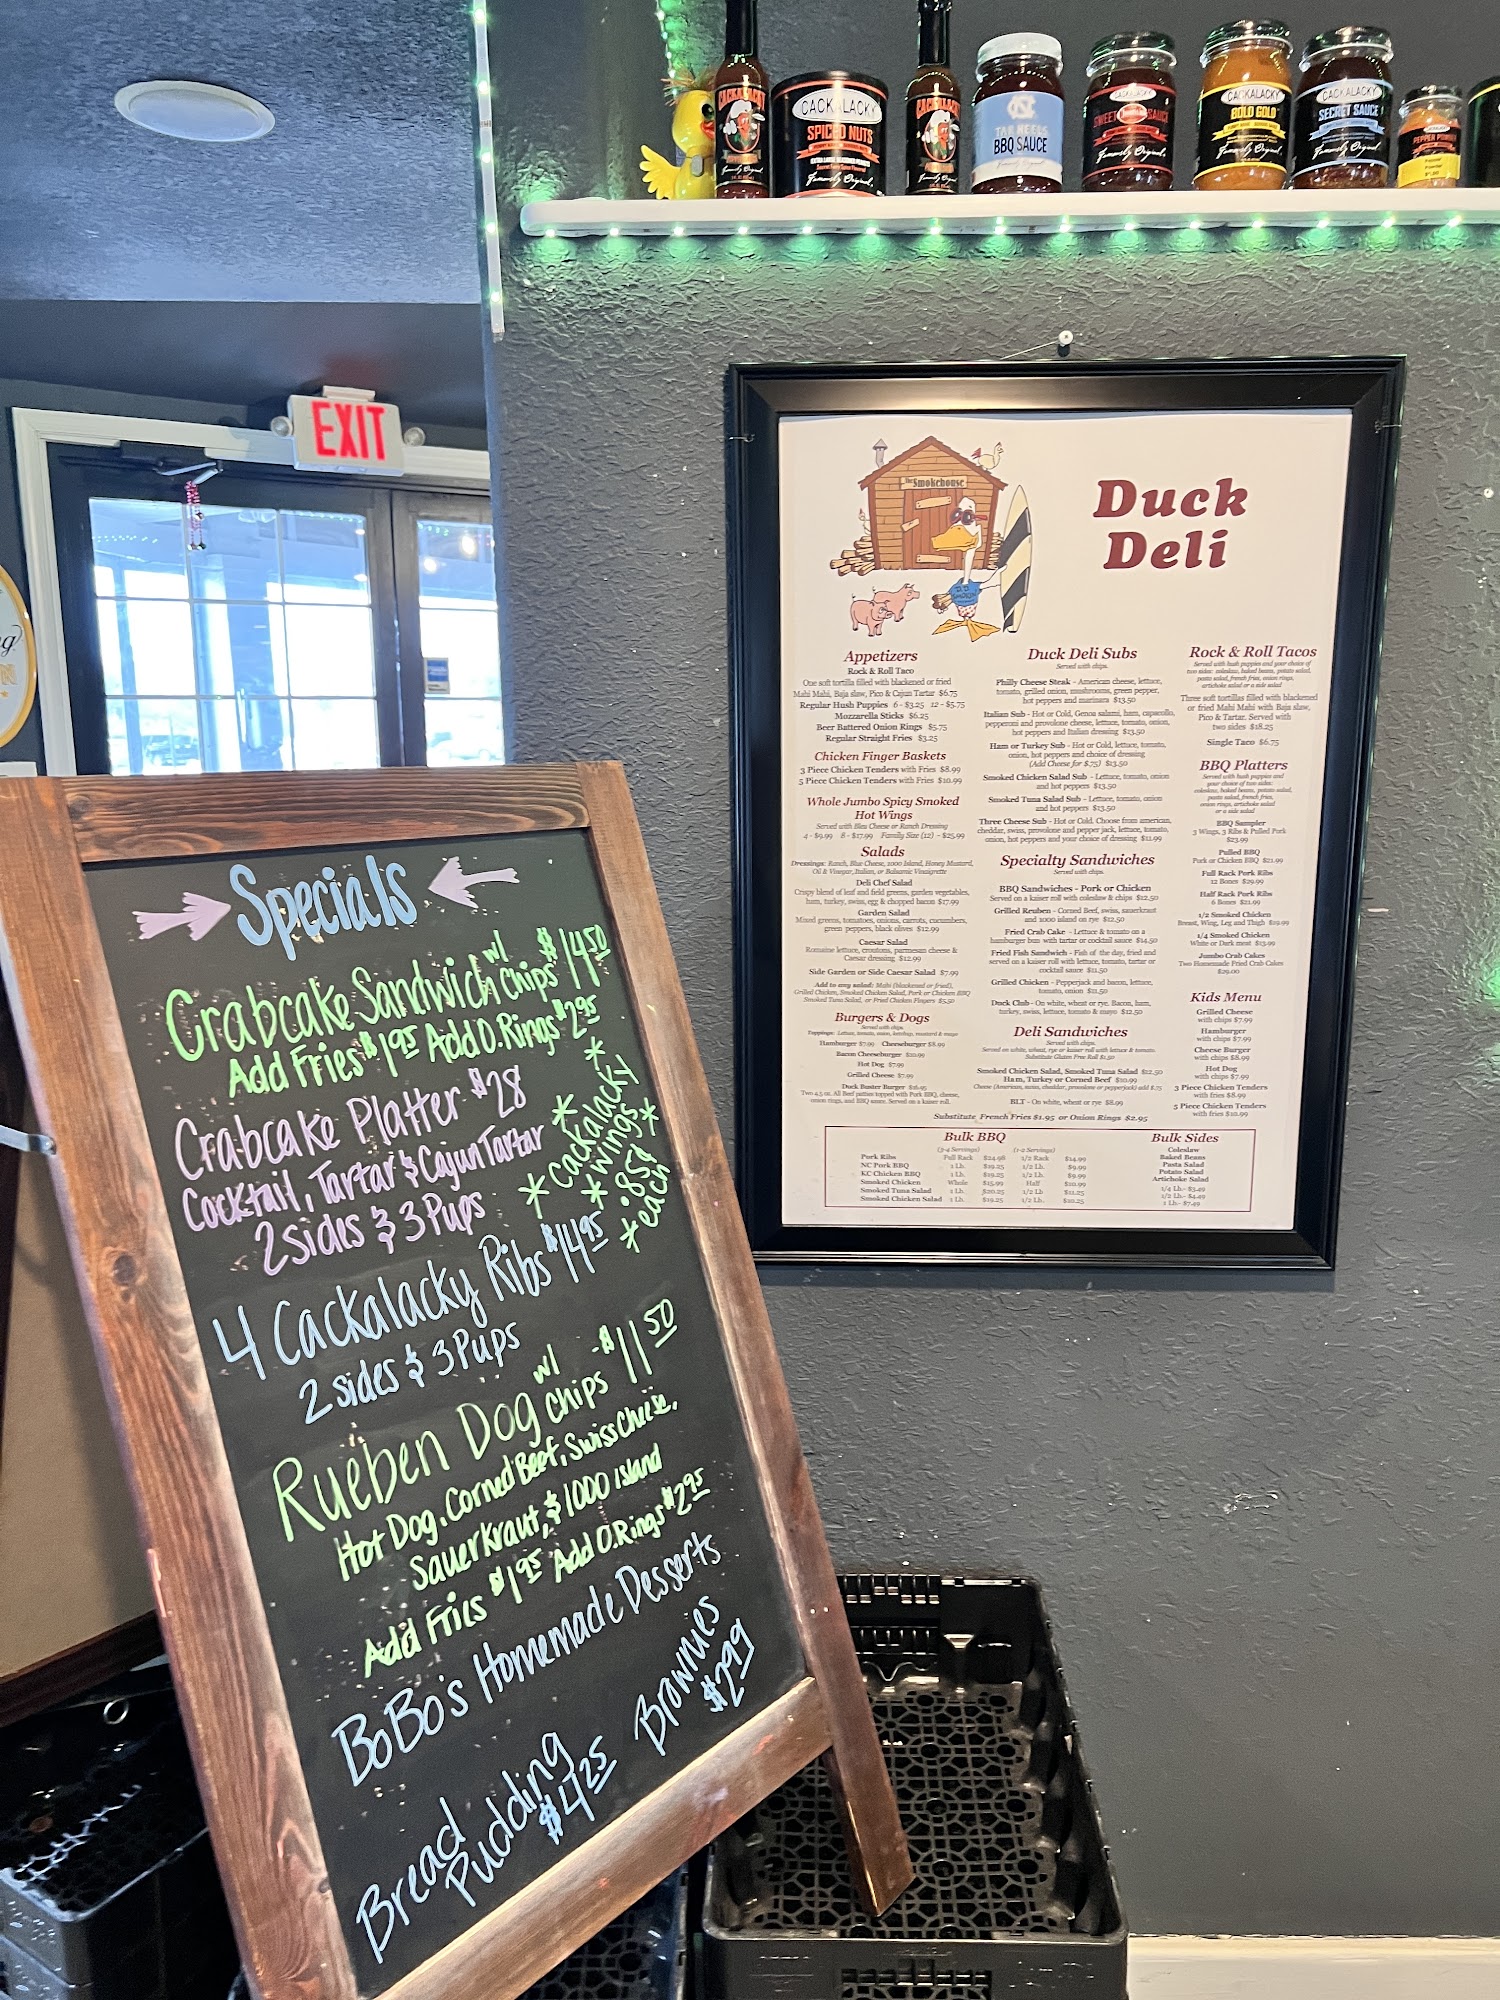 CACKALACKY
CACKALACKY
SPICED NUTS
Famously Original.
CACKALACKY
TAR HEELS
BBQ SAUCE
Famously Original.
CACKALACKY
SWEET SAUCE
Famously Original.
CACKALACKY
BOLD GOLD
Famously Original.
CACKALACKY
SECRET SAUCE
Famously Original.
EXIT
Specials
Crabcake Sandwich w/ Chips $14.50
Add Fries $1.95 Add O.Rings $2.95
Crabcake Platter $28
Cocktail, Tartar & Cajun Tartar
2 sides & 3 Pups
* Cackalacky *
* wings *
.85¢
* each *
4 Cackalacky Ribs $14.95
2 sides & 3 Pups
Rueben Dog w/ chips - $11.50
Hot Dog, Corned Beef, Swiss Cheese,
Sauerkraut, & 1000 Island
Add Fries $1.95 Add O.Rings $2.95
BoBo's Homemade Desserts
Bread
Pudding
$4.25
Brownies
$2.99
The Smokehouse
Duck
Deli
Appetizers
Rock & Roll Taco
One soft tortilla filled with blackened or fried
Mahi Mahi, Baja slaw, Pico & Cajun Tartar $6.75
Regular Hush Puppies 6 - $3.25 12 - $5.75
Mozzarella Sticks $6.25
Beer Battered Onion Rings $5.75
Regular Straight Fries $3.25
Chicken Finger Baskets
3 Piece Chicken Tenders with Fries $8.99
5 Piece Chicken Tenders with Fries $10.99
Whole Jumbo Spicy Smoked
Hot Wings
Served with Bleu Cheese or Ranch Dressing
4 - $9.99 8 - $17.99 Family Size (12) - $25.99
Salads
Dressings: Ranch, Blue Cheese, 1000 Island, Honey Mustard,
Oil & Vinegar, Italian, or Balsamic Vinaigrette
Deli Chef Salad
Crispy blend of leaf and field greens, garden vegetables,
ham, turkey, swiss, egg & chopped bacon $17.99
Garden Salad
Mixed greens, tomatoes, onions, carrots, cucumbers,
green peppers, black olives $12.99
Caesar Salad
Romaine lettuce, croutons, parmesan cheese &
Caesar dressing $12.99
Side Garden or Side Caesar Salad $7.99
Add to any salad: Mahi (blackened or fried),
Grilled Chicken, Smoked Chicken Salad, Pork or Chicken BBQ
Smoked Tuna Salad, or Fried Chicken Fingers $5.50
Burgers & Dogs
Served with chips.
Toppings: Lettuce, tomato, onion, ketchup, mustard & mayo
Hamburger $7.99 Cheeseburger $8.99
Bacon Cheeseburger $10.99
Hot Dog $7.99
Grilled Cheese $7.99
Duck Buster Burger $16.95
Two 4.5 oz. All Beef patties topped with Pork BBQ, cheese,
onion rings, and BBQ sauce. Served on a kaiser roll.
Duck Deli Subs
Served with chips.
Philly Cheese Steak - American cheese, lettuce,
tomato, grilled onion, mushrooms, green pepper,
hot peppers and marinara $13.50
Italian Sub - Hot or Cold, Genoa salami, ham, capocollo,
pepperoni and provolone cheese, lettuce, tomato, onion,
hot peppers and Italian dressing $13.50
Ham or Turkey Sub - Hot or Cold, lettuce, tomato,
onion, hot peppers and choice of dressing
(Add Cheese for $.75) $13.50
Smoked Chicken Salad Sub - Lettuce, tomato, onion
and hot peppers $13.50
Smoked Tuna Salad Sub - Lettuce, tomato, onion
and hot peppers $13.50
Three Cheese Sub - Hot or Cold. Choose from american,
cheddar, swiss, provolone and pepper jack, lettuce, tomato,
onion, hot peppers and your choice of dressing $11.99
Specialty Sandwiches
BBQ Sandwiches - Pork or Chicken
Served on a kaiser roll with coleslaw & chips $12.50
Grilled Reuben - Corned Beef, swiss, sauerkraut
and 1000 island on rye $12.50
Fried Crab Cake - Lettuce & tomato on a
hamburger bun with tartar or cocktail sauce $14.50
Fried Fish Sandwich - Fish of the day, fried and
served on a kaiser roll with lettuce, tomato, tartar or
cocktail sauce $11.50
Grilled Chicken - Pepperjack and bacon, lettuce,
tomato, onion $11.50
Duck Club - On white, wheat or rye. Bacon, ham,
turkey, swiss, lettuce, tomato & mayo $12.50
Deli Sandwiches
Served with chips.
Served on white, wheat, rye or kaiser roll with lettuce & tomato.
Substitute Gluten Free Roll $1.50
Smoked Chicken Salad, Smoked Tuna Salad $12.50
Ham, Turkey or Corned Beef $10.99
Cheese (American, swiss, cheddar, provolone or pepperjack) add $.75
BLT - On white, wheat or rye $8.99
Rock & Roll Tacos
Served with hush puppies and your choice of
two sides: coleslaw, baked beans, potato salad,
pasta salad, french fries, onion rings,
artichoke salad or a side salad
Three soft tortillas filled with blackened
or fried Mahi Mahi with Baja slaw,
Pico & Tartar. Served with
two sides $18.25
Single Taco $6.75
BBQ Platters
Served with hush puppies and
your choice of two sides:
coleslaw, baked beans, potato salad,
pasta salad, french fries,
onion rings, artichoke salad
or a side salad
BBQ Sampler
3 Wings, 3 Ribs & Pulled Pork
$23.99
Pulled BBQ
Pork or Chicken BBQ $21.99
Full Rack Pork Ribs
12 Bones $29.99
Half Rack Pork Ribs
6 Bones $21.99
1/2 Smoked Chicken
Breast, Wing, Leg and Thigh $19.99
1/4 Smoked Chicken
White or Dark meat $13.99
Jumbo Crab Cakes
Two Homemade Fried Crab Cakes
$29.00
Kids Menu
Grilled Cheese
with chips $7.99
Hamburger
with chips $7.99
Cheese Burger
with chips $8.99
Hot Dog
with chips $7.99
3 Piece Chicken Tenders
with fries $8.99
5 Piece Chicken Tenders
with fries $10.99
Substitute French Fries $1.95 or Onion Rings $2.95
Bulk BBQ
(3-4 Servings) (1-2 Servings)
Pork Ribs Full Rack $24.98 1/2 Rack $14.99
NC Pork BBQ 1 Lb. $19.25 1/2 Lb. $9.99
KC Chicken BBQ 1 Lb. $19.25 1/2 Lb. $9.99
Smoked Chicken Whole $15.99 Half $10.99
Smoked Tuna Salad 1 Lb. $20.25 1/2 Lb $11.25
Smoked Chicken Salad 1 Lb. $19.25 1/2 Lb. $10.25
Bulk Sides
Coleslaw
Baked Beans
Pasta Salad
Potato Salad
Artichoke Salad
1/4 Lb.- $3.49
1/2 Lb.- $4.49
1 Lb.- $7.49